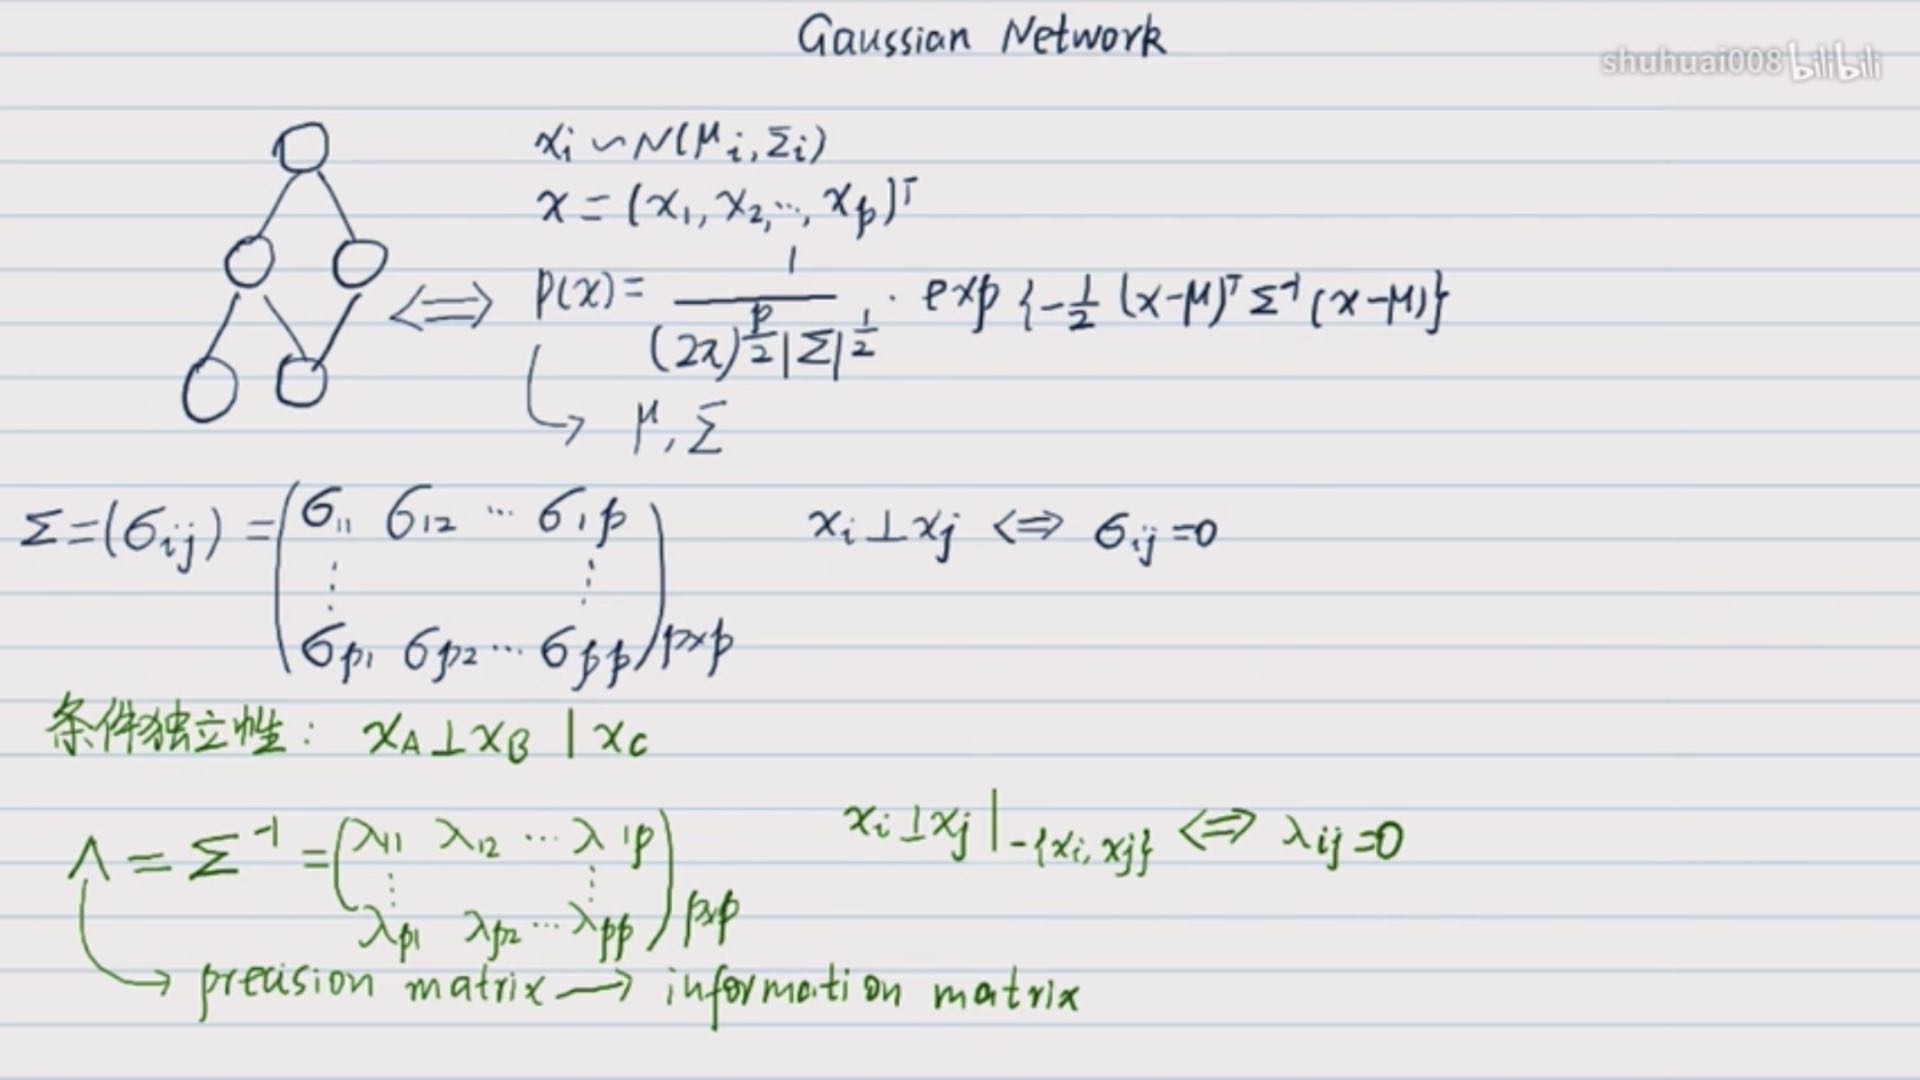 Gaussian Network
shuhuai008 bilibili
xᵢ ~ N(μᵢ, Σᵢ)
x = (x₁, x₂, ···, xₚ)ᵀ
p(x) = 1 / ((2π)^(p/2) |Σ|^(1/2)) · exp{-1/2 (x-μ)ᵀ Σ⁻¹ (x-μ)}
μ, Σ
Σ = (σij) = (σ11 σ12 ··· σ1p
⋮ ⋮
σp1 σp2 ··· σpp)p×p
xi ⊥ xj ⟺ σij = 0
条件独立性: xA ⊥ xB | xC
Λ = Σ⁻¹ = (λ11 λ12 ··· λ1p
⋮ ⋮
λp1 λp2 ··· λpp)p×p
xi ⊥ xj | -{xi, xj} ⟺ λij = 0
→ precision matrix → information matrix